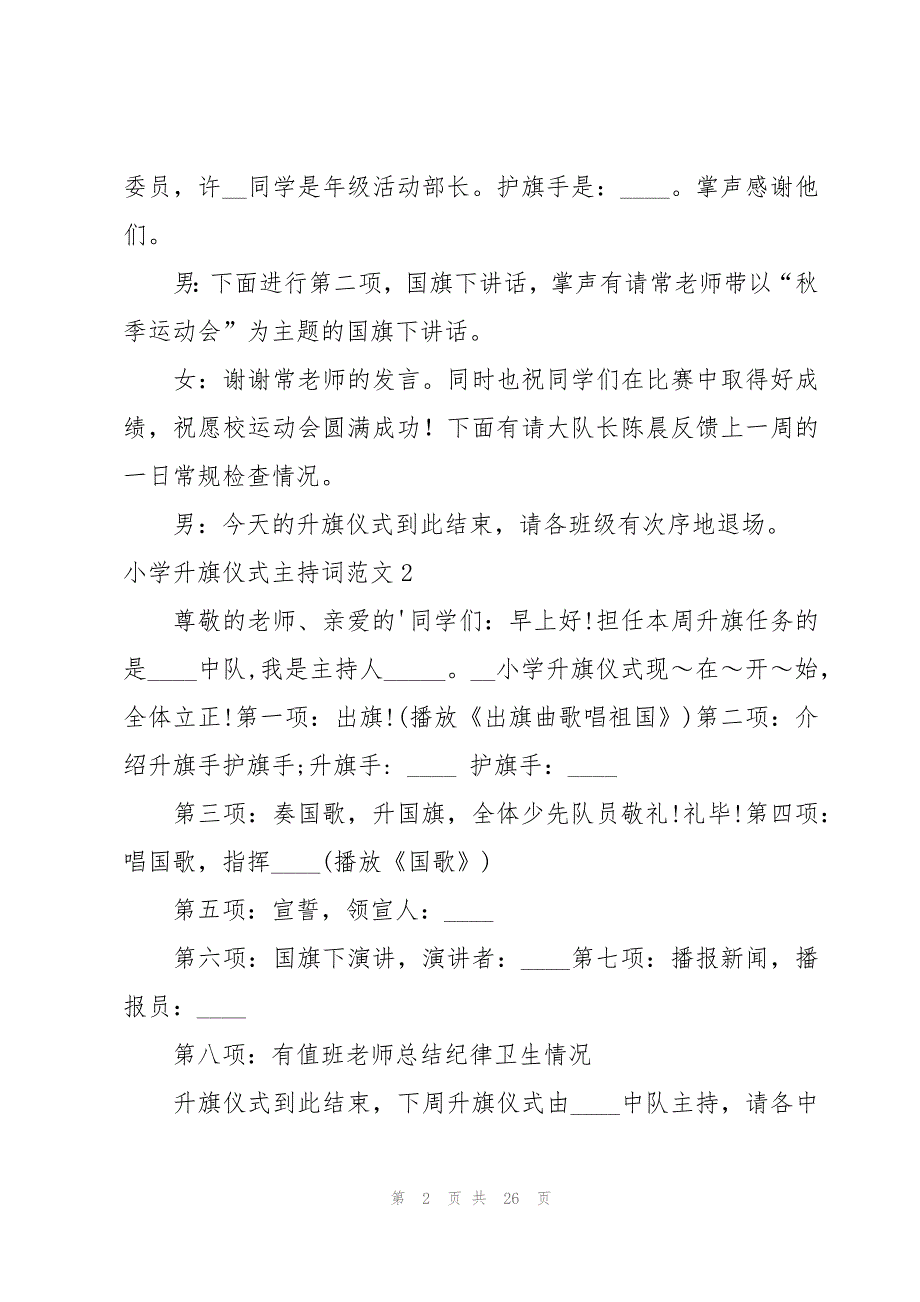 委员，许__同学是年级活动部长。护旗手是：____。掌声感谢他
们。
男：下面进行第二项，国旗下讲话，掌声有请常老师带以“秋
季运动会”为主题的国旗下讲话。
女：谢谢常老师的发言。同时也祝同学们在比赛中取得好成
绩，祝愿校运动会圆满成功！下面有请大队长陈晨反馈上一周的
一日常规检查情况。
男：今天的升旗仪式到此结束，请各班级有次序地退场。
小学升旗仪式主持词范文2
尊敬的老师、亲爱的'同学们：早上好!担任本周升旗任务的
是____中队,我是主持人_____。__小学升旗仪式现～在～开～始，
全体立正!第一项：出旗!(播放《出旗曲歌唱祖国》)第二项：介
绍升旗手护旗手;升旗手: ____ 护旗手：____
第三项：奏国歌，升国旗，全体少先队员敬礼!礼毕!第四项：
唱国歌，指挥____(播放《国歌》)
第五项：宣誓，领宣人：____
第六项：国旗下演讲，演讲者：____第七项：播报新闻，播
报员：____
第八项：有值班老师总结纪律卫生情况
升旗仪式到此结束，下周升旗仪式由____中队主持，请各中
第 2 页 共 26 页